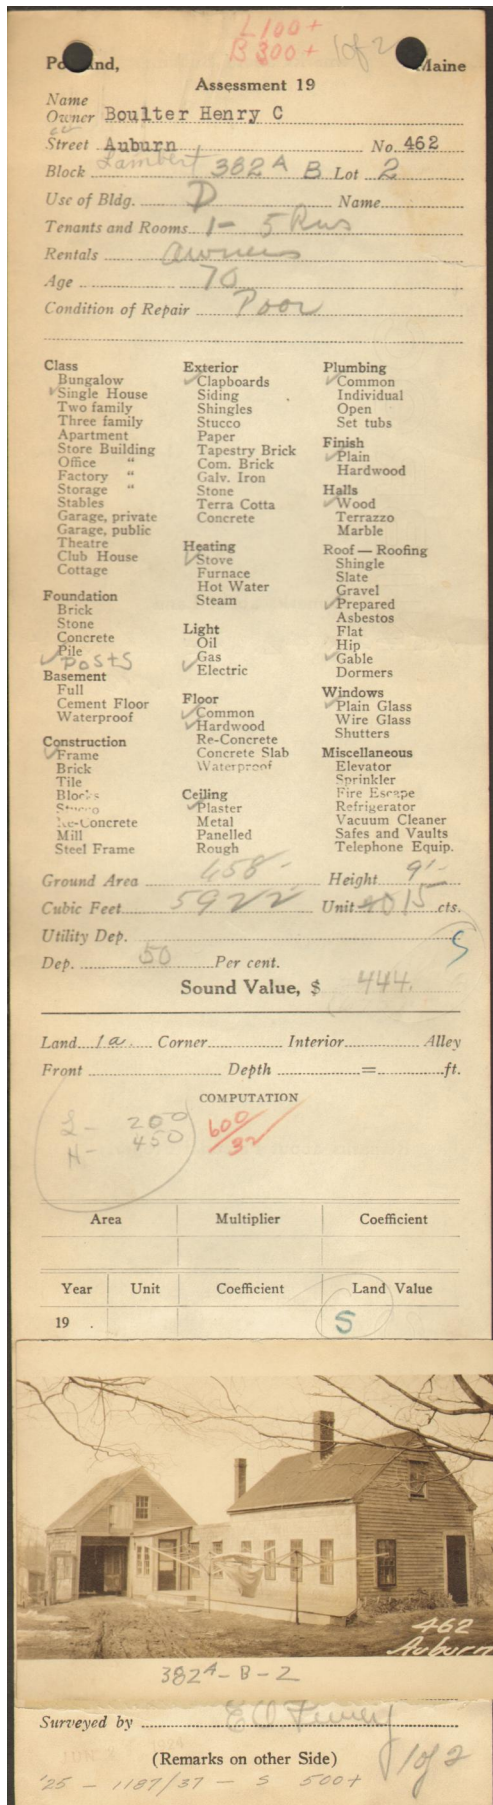 L 100+
B 300+ 1 of 2
Portland, Maine
Assessment 19
Name
Owner Boulter Henry C
Street Auburn No. 462
Lambert
Block 382A B Lot 2
Use of Bldg. D Name
Tenants and Rooms 1- 5 Rms
Rentals Owners
Age 70
Condition of Repair Poor
Class
Bungalow
✓Single House
Two family
Three family
Apartment
Store Building
Office "
Factory "
Storage "
Stables
Garage, private
Garage, public
Theatre
Club House
Cottage
Foundation
Brick
Stone
Concrete
✓Pile
Posts
Basement
Full
Cement Floor
Waterproof
Construction
✓Frame
Brick
Tile
Blocks
Stucco
Re-Concrete
Mill
Steel Frame
Exterior
✓Clapboards
Siding
Shingles
Stucco
Paper
Tapestry Brick
Com. Brick
Galv. Iron
Stone
Terra Cotta
Concrete
Heating
✓Stove
Furnace
Hot Water
Steam
Light
Oil
Gas
✓Electric
Floor
✓Common
✓Hardwood
Re-Concrete
Concrete Slab
Waterproof
Ceiling
✓Plaster
Metal
Panelled
Rough
Plumbing
✓Common
Individual
Open
Set tubs
Finish
✓Plain
Hardwood
Halls
✓Wood
Terrazzo
Marble
Roof — Roofing
Shingle
Slate
Gravel
✓Prepared
Asbestos
Flat
Hip
✓Gable
Dormers
Windows
✓Plain Glass
Wire Glass
Shutters
Miscellaneous
Elevator
Sprinkler
Fire Escape
Refrigerator
Vacuum Cleaner
Safes and Vaults
Telephone Equip.
Ground Area 658- Height 9'-
Cubic Feet 5922 Unit 15 cts.
Utility Dep. S
Dep. 50 Per cent.
Sound Value, $ 444.
Land 1a. Corner Interior Alley
Front Depth = ft.
COMPUTATION
L- 200 600/32
H- 450
Area Multiplier Coefficient
Year Unit Coefficient Land Value
19 . S
462
Auburn
382A-B-2
Surveyed by
(Remarks on other Side) 1 of 2
'25 - 1187/37 - S 500+